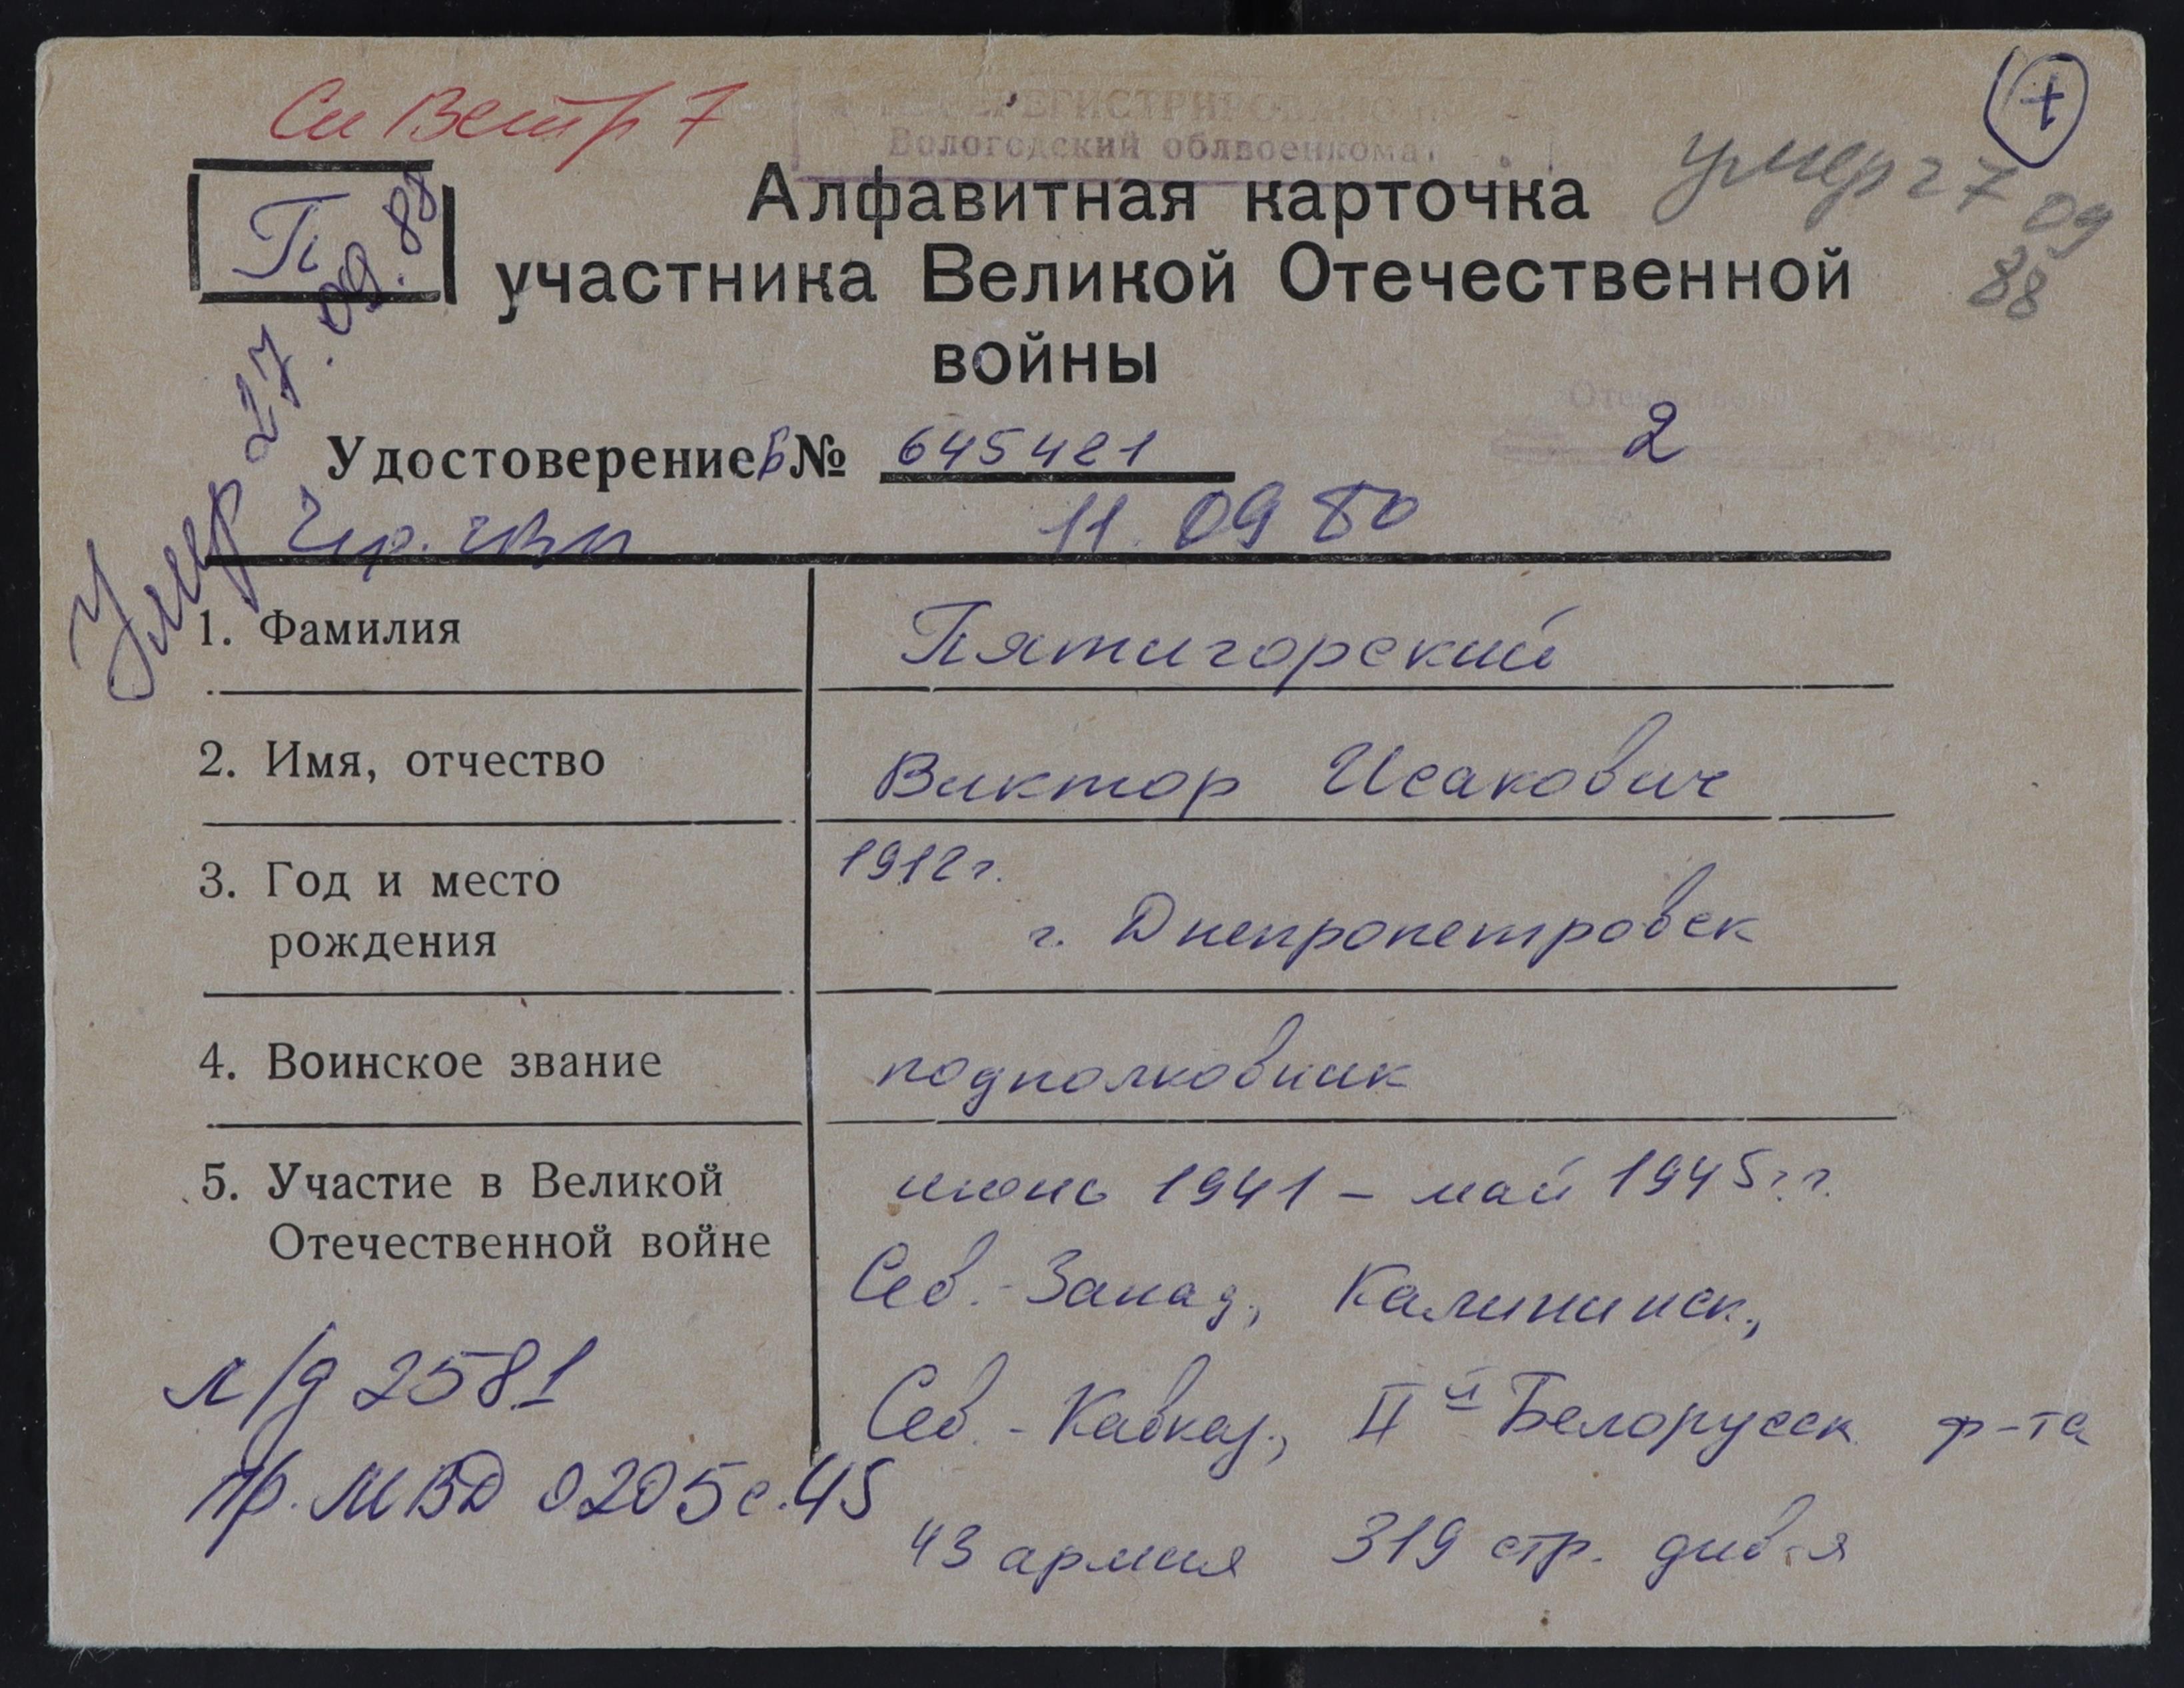 См Ветр 7
ПЕРЕРЕГИСТРИРОВАНО
Вологодский облвоенкомат
+
умер 27 09
88
П
Алфавитная карточка
участника Великой Отечественной
войны
Умер 27.09.88
Удостоверение Б № 645421
2
11.09 80
1. Фамилия Пятигорский
2. Имя, отчество Виктор Исакович
3. Год и место 1912 г.
рождения г. Днепропетровск
4. Воинское звание подполковник
5. Участие в Великой июнь 1941 – май 1945 г.г.
Отечественной войне Сев.-Запад., Калининск.,
л/д 2581 Сев.-Кавказ., IIй Белорусск ф-та
пр. МВД 0205 с.45
43 армия 319 стр. див-я